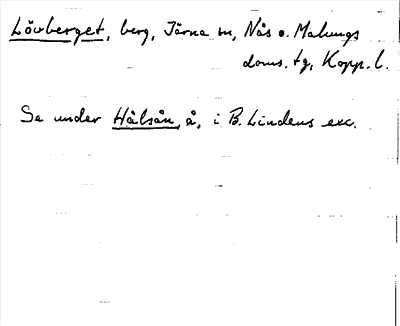 Lövberget, berg, Järna sn, Nås o. Malungs
doms. tg, Kopp. l.
Se under Hålsån, å, i B. Lindens exc.